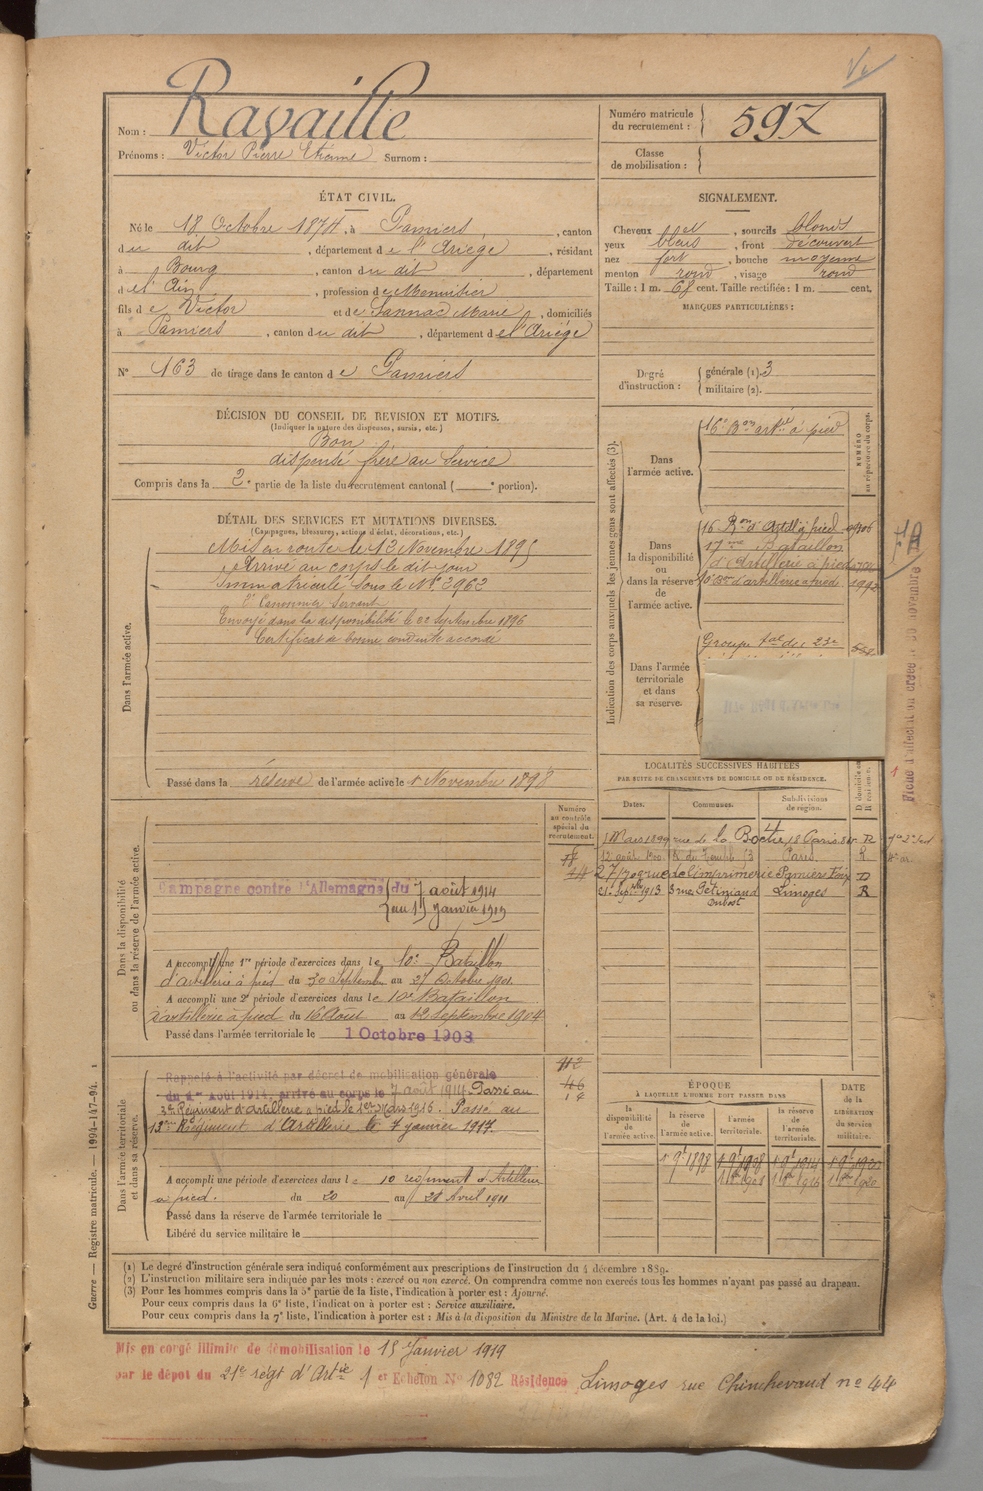 Nom : Ravaille
Prénoms : Victor Pierre Etienne Surnom :
Numéro matricule du recrutement : 597
Classe de mobilisation :
ÉTAT CIVIL.
Né le 18 Octobre 1874, à Pamiers, canton
du dit, département de l'Ariège, résidant
à Bourg, canton du dit, département
de l'Ain, profession de Menuisier
fils de Victor et de Sannac Marie, domiciliés
à Pamiers, canton du dit, département de l'Ariège
N° 163 de tirage dans le canton de Pamiers
SIGNALEMENT.
Cheveux et, sourcils blonds
yeux bleus, front découvert
nez fort, bouche moyenne
menton rond, visage rond
Taille : 1 m. 68 cent. Taille rectifiée : 1 m. cent.
MARQUES PARTICULIÈRES :
Degré d'instruction : générale (1). 3
militaire (2).
DÉCISION DU CONSEIL DE REVISION ET MOTIFS.
(Indiquer la nature des dispenses, sursis, etc.)
Bon
dispensé frère au Service
Compris dans la 2e partie de la liste du recrutement cantonal ( e portion).
DÉTAIL DES SERVICES ET MUTATIONS DIVERSES.
(Campagnes, blessures, actions d'éclat, décorations, etc.)
Dans l'armée active.
Mis en route le 13 Novembre 1895
Arrivé au corps le dit jour
Immatriculé sous le N° 2962
2e Canonnier Servant
Envoyé dans la disponibilité le 22 Septembre 1896
Certificat de bonne conduite accordé
Passé dans la réserve de l'armée active le 1 Novembre 1898
Indication des corps auxquels les jeunes gens sont affectés (3).
NUMÉRO au répertoire du corps.
Dans l'armée active.
16e Bon artie à pied
Dans la disponibilité ou dans la réserve de l'armée active.
16 Bon d'Artillie à pied
17me Bataillon
d'Artillerie à pied
10 Bon d'artillerie à pied 1992
Dans l'armée territoriale et dans sa réserve.
Groupe tal du 23e
LOCALITÉS SUCCESSIVES HABITÉES
PAR SUITE DE CHANGEMENTS DE DOMICILE OU DE RÉSIDENCE.
Dates. Communes. Subdivisions de région.
Mars 1899 rue de la 18 Paris R
12 août 1900 Paris R
27/7 rue de l'imprimerie Pamiers Foix D
21 Sept 1913 3 rue Pétiniaud Dubost Limoges R
Numéro au contrôle spécial du recrutement.
Dans la disponibilité ou dans la réserve de l'armée active.
Campagne contre l'Allemagne du 7 août 1914
au 15 janvier 1919
A accompli une 1re période d'exercices dans le 10e Bataillon
d'artillerie à pied du 30 Septembre au 27 Octobre 1901
A accompli une 2e période d'exercices dans le 10e Bataillon
d'artillerie à pied du 16 Août au 12 Septembre 1904
Passé dans l'armée territoriale le 1 Octobre 1908
Dans l'armée territoriale et dans sa réserve.
112
46
14
Rappelé à l'activité par décret de mobilisation générale
du 1er Août 1914, arrivé au corps le 7 août 1914. Passé au
3e Régiment d'Artillerie à pied le 1er Mars 1916. Passé au
Régiment d'Artillerie, le 7 janvier 1917.
A accompli une période d'exercices dans le 10 régiment d'Artillerie
à pied. du 20 au 28 Avril 1911
Passé dans la réserve de l'armée territoriale le
Libéré du service militaire le
ÉPOQUE À LAQUELLE L'HOMME DOIT PASSER DANS
la disponibilité de l'armée active.
la réserve de l'armée active.
l'armée territoriale.
la réserve de l'armée territoriale.
DATE de la LIBÉRATION du service militaire.
1 9e 1898
Guerre — Registre matricule. — 1994-147-94.
(1) Le degré d'instruction générale sera indiqué conformément aux prescriptions de l'instruction du 4 décembre 1889.
(2) L'instruction militaire sera indiquée par les mots : exercé ou non exercé. On comprendra comme non exercés tous les hommes n'ayant pas passé au drapeau.
(3) Pour les hommes compris dans la 5e partie de la liste, l'indication à porter est : Ajourné.
Pour ceux compris dans la 6e liste, l'indication à porter est : Service auxiliaire.
Pour ceux compris dans la 7e liste, l'indication à porter est : Mis à la disposition du Ministre de la Marine. (Art. 4 de la loi.)
Mis en congé illimité de démobilisation le 15 Janvier 1919
par le dépôt du 21e régt d'Artie 1 et Echelon N° 1082 Résidence Limoges rue Chinchevaud n° 44